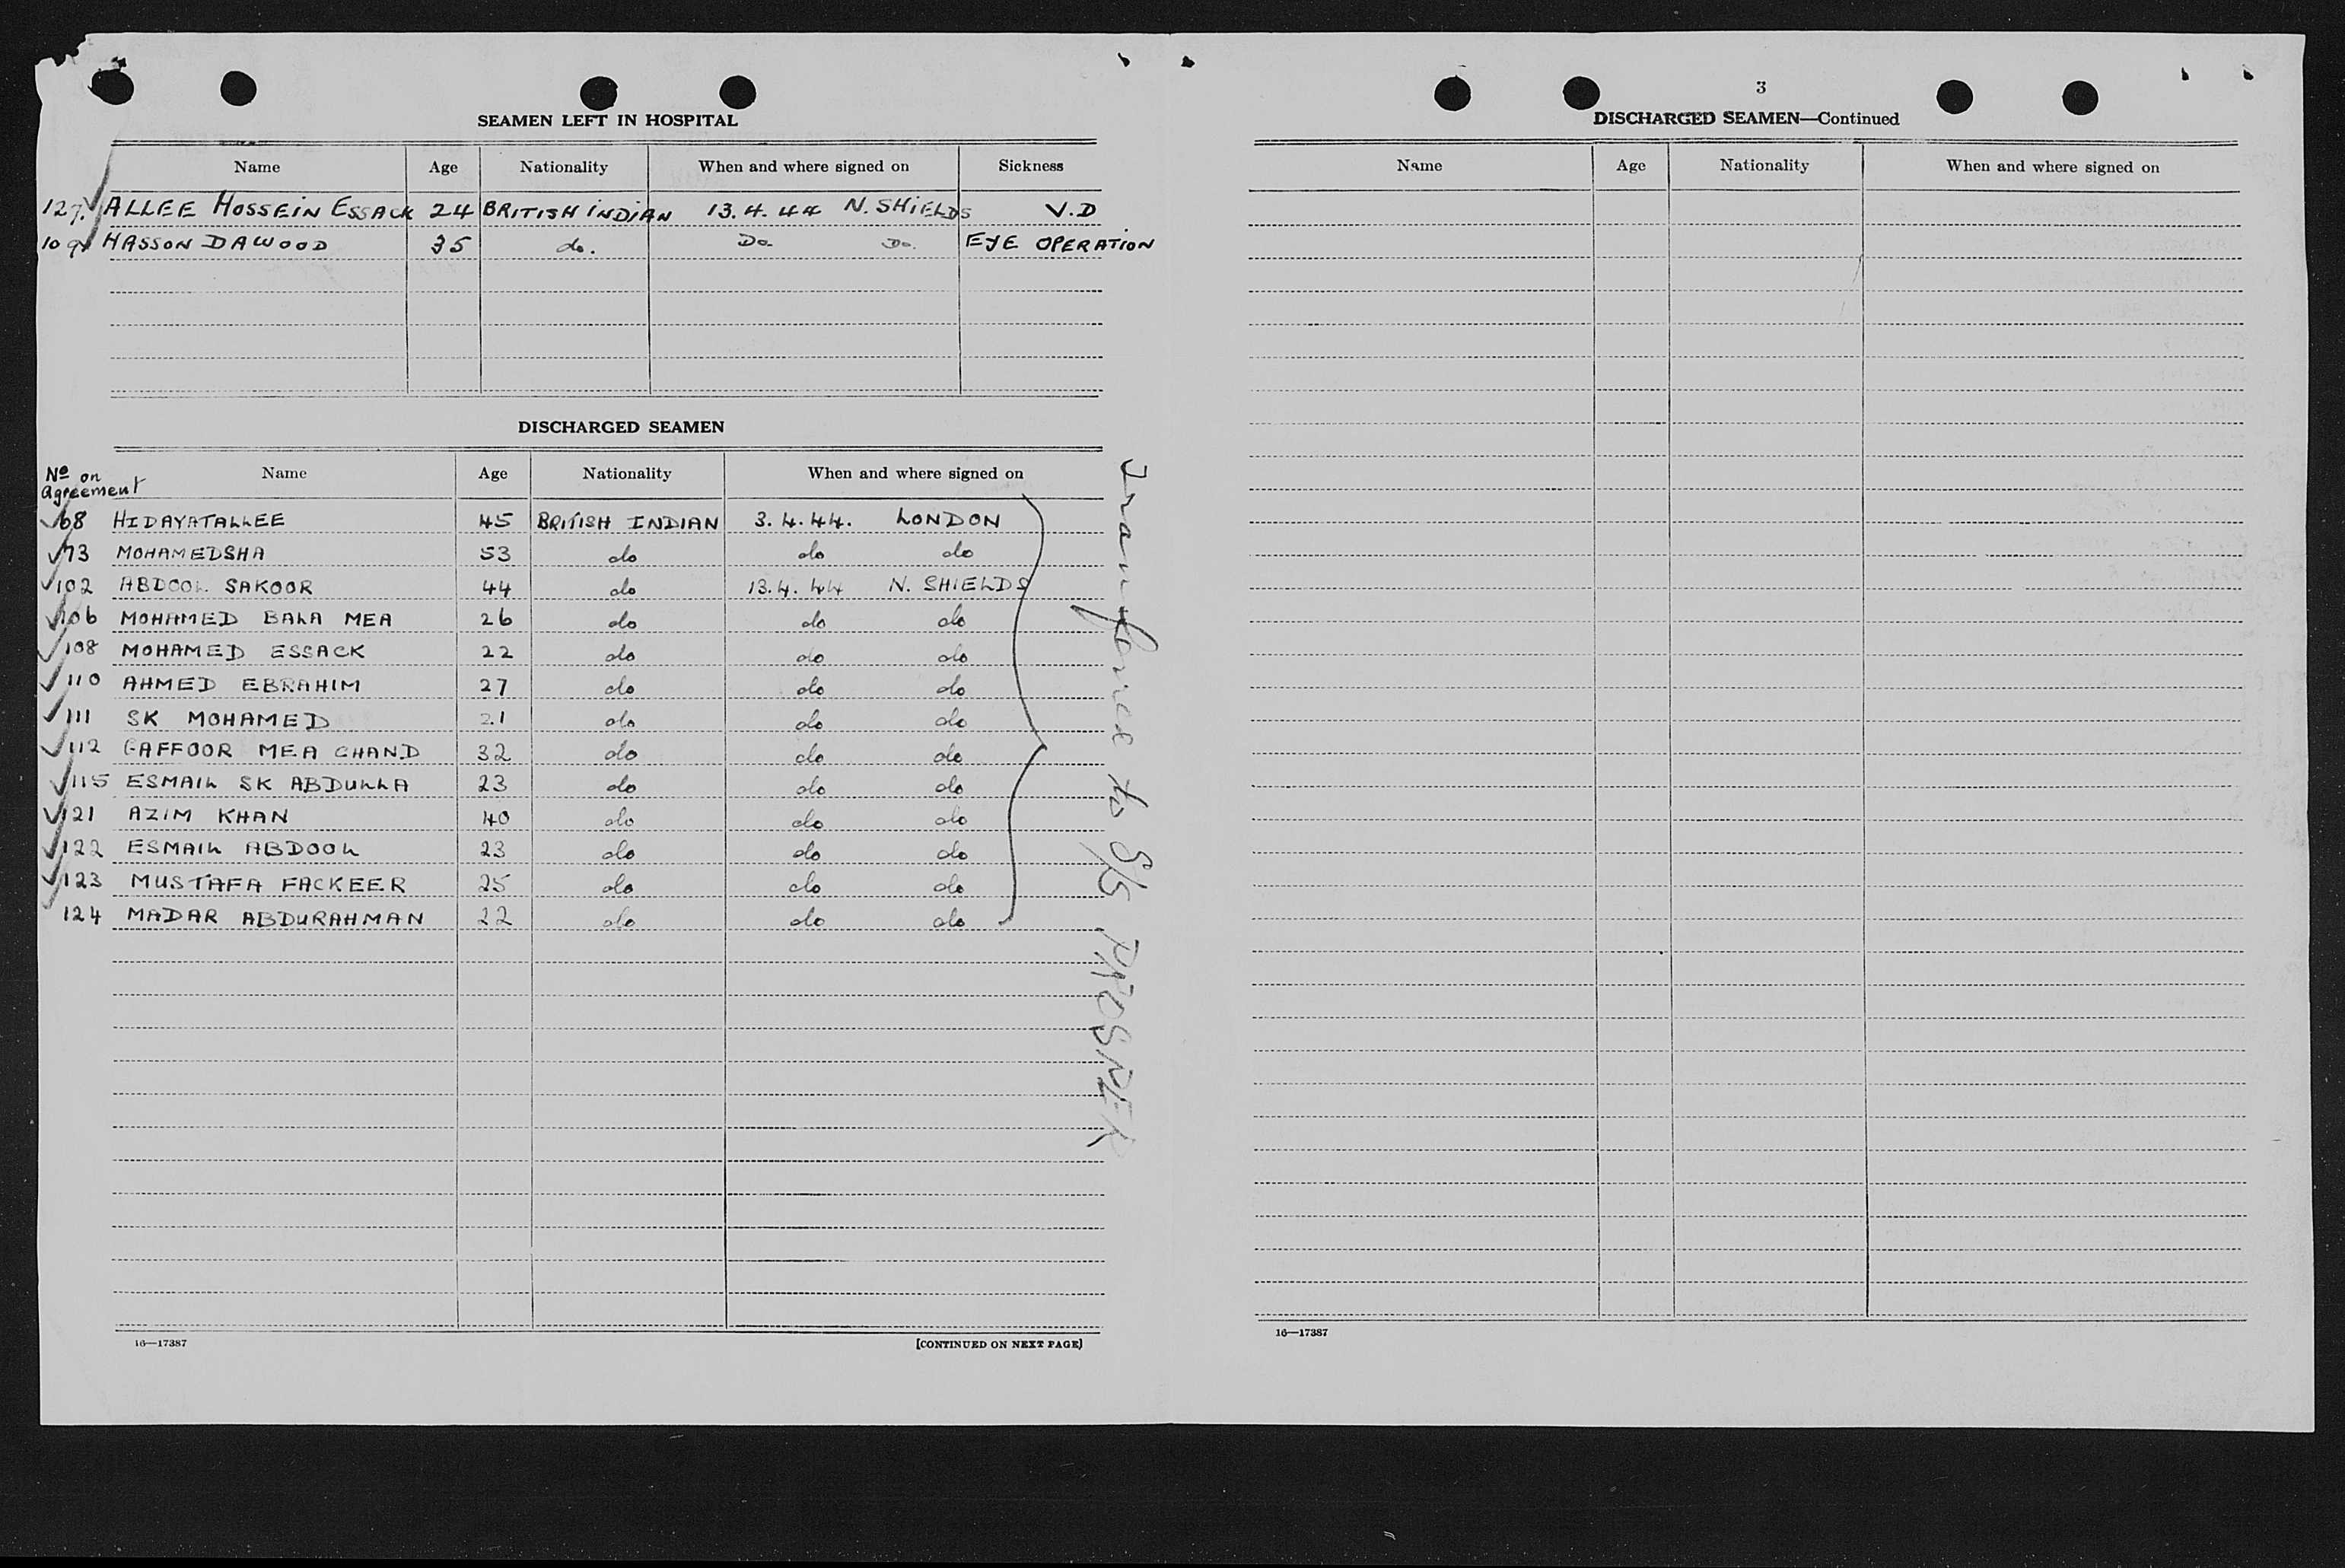 SEAMEN LEFT IN HOSPITAL
Name Age Nationality When and where signed on Sickness
127. ALLEE HOSSEIN ESSACK 24 BRITISH INDIAN 13.4.44 N. SHIELDS V.D
109 HASSON DAWOOD 35 do. Do Do. EYE OPERATION
DISCHARGED SEAMEN
Nº on Agreement Name Age Nationality When and where signed on
68 HIDAYATALLEE 45 BRITISH INDIAN 3.4.44. LONDON
73 MOHAMEDSHA 53 do do do
102 ABDOOL SAKOOR 44 do 13.4.44 N. SHIELDS
106 MOHAMED BALA MEA 26 do do do
108 MOHAMED ESSACK 22 do do do
110 AHMED EBRAHIM 27 do do do
111 SK MOHAMED 21 do do do
112 GAFFOOR MEA CHAND 32 do do do
115 ESMAIL SK ABDULLA 23 do do do
121 AZIM KHAN 40 do do do
122 ESMAIL ABDOOL 23 do do do
123 MUSTAFA FACKEER 25 do do do
124 MADAR ABDURAHMAN 22 do do do
to S/S PROSPER
16—17387 [CONTINUED ON NEXT PAGE]
3
DISCHARGED SEAMEN—Continued
Name Age Nationality When and where signed on
16—17387